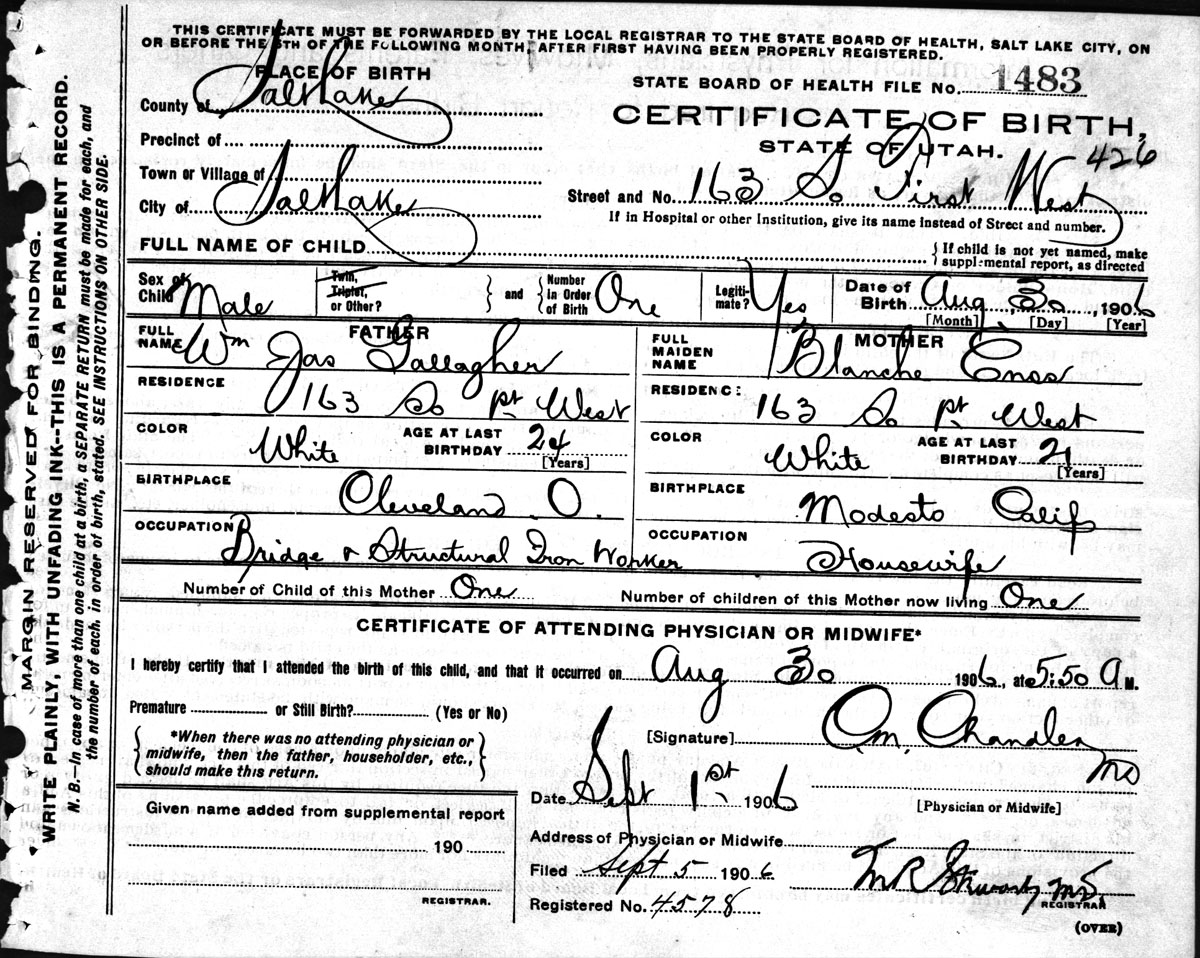 THIS CERTIFICATE MUST BE FORWARDED BY THE LOCAL REGISTRAR TO THE STATE BOARD OF HEALTH, SALT LAKE CITY, ON
OR BEFORE THE 5TH OF THE FOLLOWING MONTH, AFTER FIRST HAVING BEEN PROPERLY REGISTERED.
PLACE OF BIRTH
STATE BOARD OF HEALTH FILE No. 1483
County of Salt Lake
CERTIFICATE OF BIRTH,
Precinct of
STATE OF UTAH.
426
Town or Village of
Street and No. 163 So First West
City of Salt Lake
If in Hospital or other Institution, give its name instead of Street and number.
FULL NAME OF CHILD
If child is not yet named, make
supplemental report, as directed
Sex of Child Male
Twin, Triplet, or Other?
and
Number in Order of Birth One
Legitimate? Yes
Date of Birth Aug 30, 1906
[Month] [Day] [Year]
FATHER
FULL NAME Wm Jas Gallagher
RESIDENCE 163 So 1st West
COLOR White
AGE AT LAST BIRTHDAY 24
[Years]
BIRTHPLACE Cleveland O.
OCCUPATION Bridge & Structural Iron Worker
MOTHER
FULL MAIDEN NAME Blanche Enos
RESIDENCE: 163 So 1st West
COLOR White
AGE AT LAST BIRTHDAY 21
[Years]
BIRTHPLACE Modesto Calif
OCCUPATION Housewife
Number of Child of this Mother One
Number of children of this Mother now living One
CERTIFICATE OF ATTENDING PHYSICIAN OR MIDWIFE*
I hereby certify that I attended the birth of this child, and that it occurred on Aug 30 1906, at 5:50 A M.
Premature or Still Birth? (Yes or No)
*When there was no attending physician or
midwife, then the father, householder, etc.,
should make this return.
[Signature] Chandler MD
Date Sept 1st 1906
[Physician or Midwife]
Given name added from supplemental report
190
REGISTRAR.
Address of Physician or Midwife
Filed Sept 5 1906
M.D.
REGISTRAR
Registered No. 4578
(OVER)
MARGIN RESERVED FOR BINDING.
WRITE PLAINLY, WITH UNFADING INK--THIS IS A PERMANENT RECORD.
N. B.—In case of more than one child at a birth, a SEPARATE RETURN must be made for each, and
the number of each, in order of birth, stated. SEE INSTRUCTIONS ON OTHER SIDE.